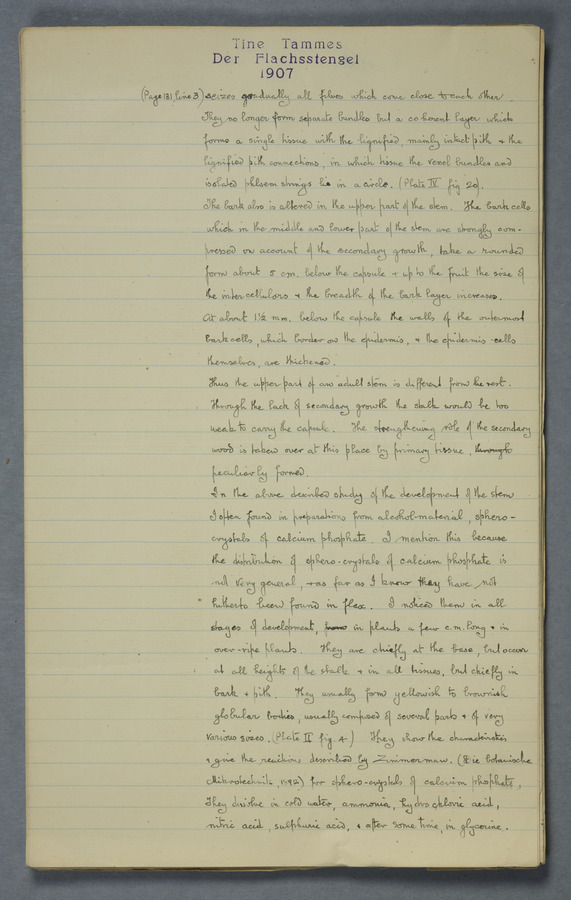 Tine Tammes
Der Flachsstengel
1907
(Page 131 line 3) seizes gradually all fibres which come close to each other.
They no longer form separate bundles but a coherent layer which
forms a single tissue with the lignified, mainly intact pith + the
lignified pith connections, in which tissue the vessel bundles and
isolated phloem strings lie in a circle. (Plate IV fig 20).
The bark also is altered in the upper part of the stem. The bark cells
which in the middle and lower part of the stem are strongly com-
pressed on account of the secondary growth, take a rounded
form about 5 cm. below the capsule + up to the fruit the size of
the intercellulars + the breadth of the bark layer increases.
At about 1½ mm. below the capsule the walls of the outermost
bark cells, which border on the epidermis, + the epidermis cells
themselves, are thickened.
Thus the upper part of an adult stem is different from the rest.
Through the lack of secondary growth the stalk would be too
weak to carry the capsule. The strengthening rôle of the secondary
wood is taken over at this place by primary tissue, through
peculiarly formed.
In the above described study of the development of the stem
I often found in preparations from alcohol-material, sphero-
crystals of calcium phosphate. I mention this because
the distribution of sphero-crystals of calcium phosphate is
not very general, + as far as I know they have not
hitherto been found in flax. I noticed them in all
stages of development, from in plants a few c.m. long + in
over-ripe plants. They are chiefly at the base, but occur
at all heights of the stalk + in all tissues, but chiefly in
bark + pith. They usually form yellowish to brownish
globular bodies, usually composed of several parts + of very
various sizes. (Plate II fig. 4) They show the characteristics
+ give the reactions described by Zimmermann. (Die botanische
Mikrotechnik, 1892) for sphero-crystals of calcium phosphate,
They dissolve in cold water, ammonia, hydrochloric acid,
nitric acid, sulphuric acid, + after some time, in glycerine.